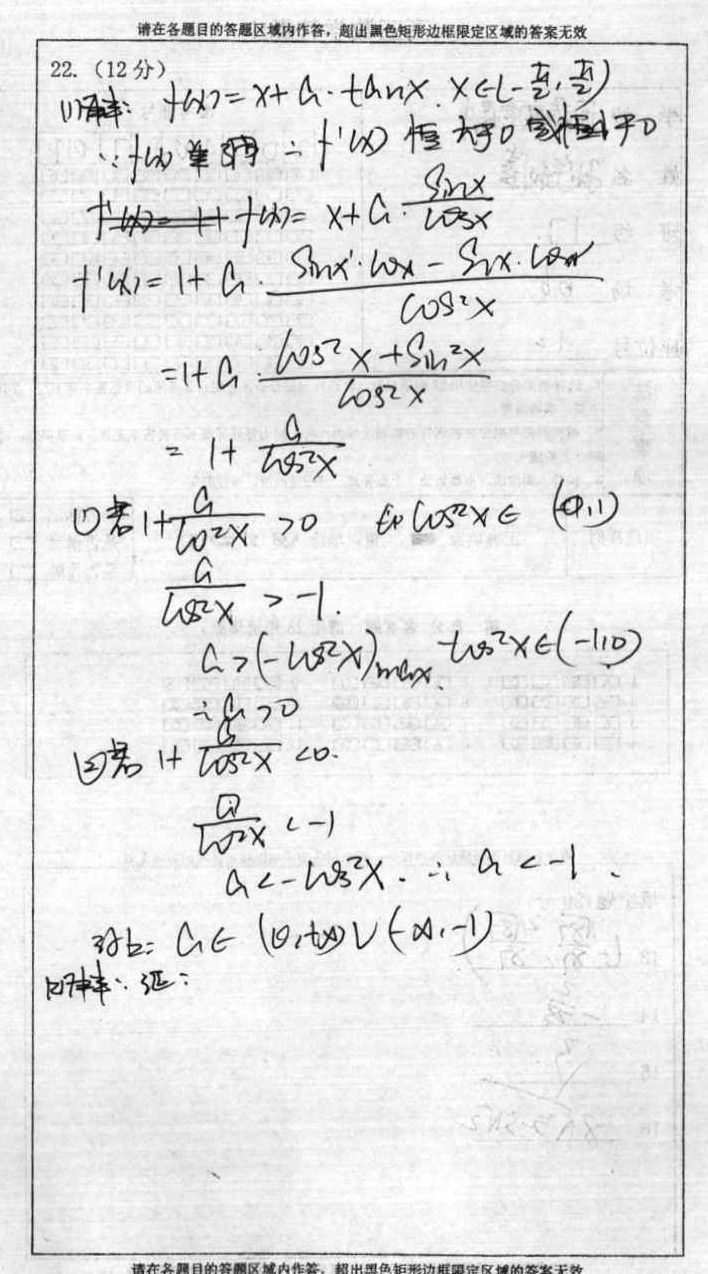 请在各题目的答题区域内作答，超出黑色矩形边框限定区域的答案无效
22.（12分）
(1)解: f(x)=x+a·tanx. x∈(-π/2, π/2)
∵f(x)单调 ∴f'(x)恒大于0或恒小于0
f(x)= x+a·sinx/cosx
f'(x)=1+a·(sinx'·cosx-sinx·cosx')/cos²x
=1+a·(cos²x+sin²x)/cos²x
=1+a/cos²x
①若1+a/cos²x>0 cos²x∈(0,1)
a/cos²x>-1.
a>(-cos²x)max. -cos²x∈(-1,0)
∴a>0
②若1+a/cos²x<0.
a/cos²x<-1
a<-cos²x. ∴a<-1.
综上: a∈(0,+∞)∪(-∞,-1)
(2)解: 证:
请在各题目的答题区域内作答，超出黑色矩形边框限定区域的答案无效